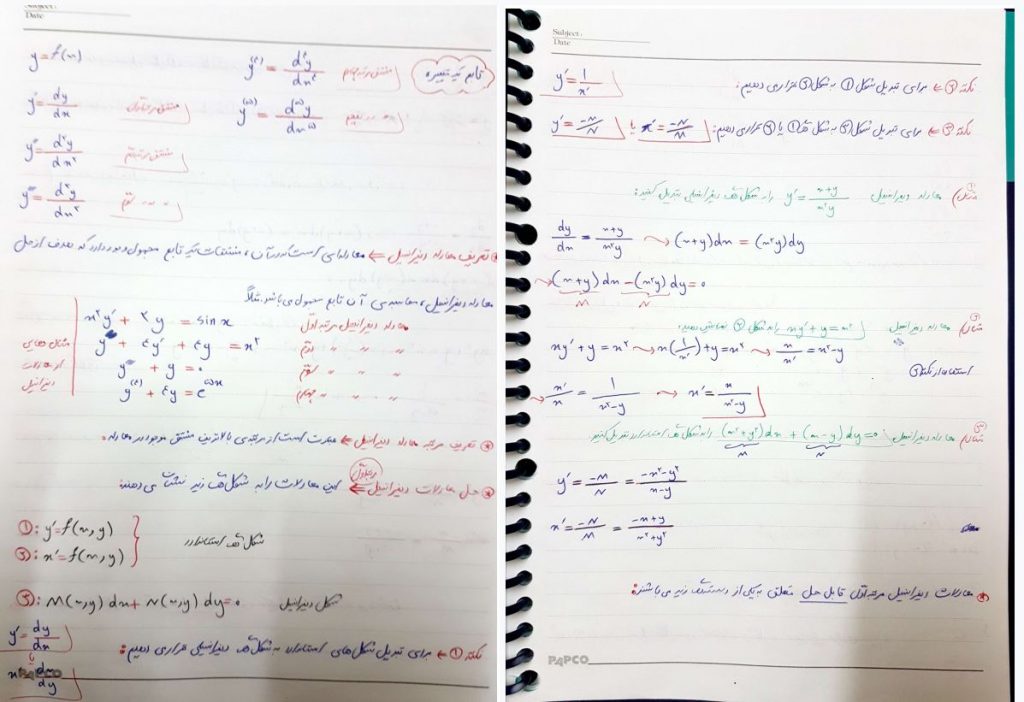 Subject:
Date
تابع یک متغیره
y = f(x)
y⁽⁴⁾ = d⁴y/dx⁴ مشتق مرتبه چهارم
y′ = dy/dx مشتق مرتبه اول
y⁽⁵⁾ = d⁵y/dx⁵ پنجم
y″ = d²y/dx² مشتق مرتبه دوم
y‴ = d³y/dx³ سوم
تعریف معادله دیفرانسیل ⇐ معادله‌ای است که در آن، مشتقات یک تابع مجهول وجود دارد که هدف از حل
معادله دیفرانسیل، محاسبه‌ی آن تابع مجهول می باشد. مثلاً
x²y′ + 2y = sin x معادله دیفرانسیل مرتبه اول
y″ + 4y′ + 4y = x² " " " دوم
y‴ + y = ۰ " " " سوم
y⁽⁴⁾ + 4y = e⁵ˣ " " " چهارم
مثال هایی
از معادلات
دیفرانسیل
* تعریف مرتبه معادله دیفرانسیل ⇐ عبارت است از مرتبه ی بالاترین مشتق موجود در معادله.
* حل معادلات دیفرانسیل مرتبه اول ⇐ این معادلات را به شکل های زیر نشان می دهند:
①: y′ = f(x,y)
②: x′ = f(x,y)
شکل های استاندارد
③: M(x,y) dx + N(x,y) dy = ۰ شکل دیفرانسیل
نکته ① ⇐ برای تبدیل شکل های استاندارد به شکل های دیفرانسیلی قرار می دهیم:
y′ = dy/dx
یا
x′ = dx/dy
PAPCO
Subject:
Date
نکته ② ⇐ برای تبدیل شکل ① به شکل ② قرار می دهیم: y′ = 1/x′
نکته ③ ⇐ برای تبدیل شکل ③ به شکل های ① یا ② قرار می دهیم: x′ = -N/M یا y′ = -M/N
مثال ①) معادله دیفرانسیل y′ = (x+y)/(x²y) را به شکل های دیفرانسیلی تبدیل کنید:
dy/dx = (x+y)/(x²y) ⇝ (x+y)dx = (x²y)dy
⇝ (x+y) dx - (x²y) dy = ۰
M N
مثال ②) معادله دیفرانسیل xy′ + y = x² را به شکل ② نمایش دهید:
xy′ + y = x² ⇝ x(1/x′) + y = x² ⇝ x/x′ = x² - y
استفاده از نکته ②
⇝ x′/x = 1/(x²-y) ⇝ x′ = x/(x²-y)
مثال ③) معادله دیفرانسیل (x²+y²) dx + (x-y) dy = ۰ را به شکل های استاندارد تبدیل کنید:
M N
y′ = -M/N = (-x²-y²)/(x-y)
x′ = -N/M = (-x+y)/(x²+y²)
* معادلات دیفرانسیل مرتبه اول قابل حل متعلق به یکی از دسته های زیر می باشند:
PAPCO